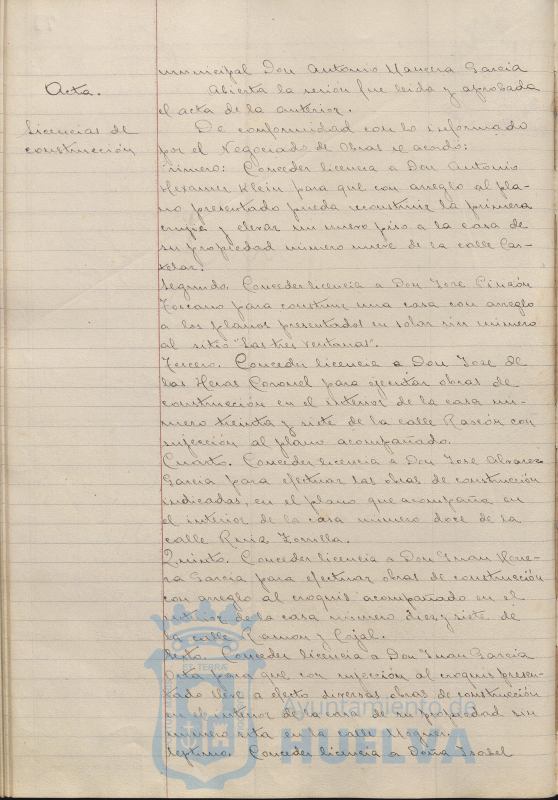 municipal Don Antonio Garcia
Acta.
Abierta la sesión fue leida y aprobada
el acta de la anterior.
Licencias de
construcción
De conformidad con lo informado
por el Negociado de Obras se acordó:
Primero: Conceder licencia a Don Antonio
Klein para que con arreglo al pla-
no presentado pueda reconstruir la primera
crujia y elevar un nuevo piso a la casa de
su propiedad número nueve de la calle Cas-
telar.
Segundo. Conceder licencia a Don José Pinzón
Toscano para construir una casa con arreglo
a los planos presentados en solar sin número
al sitio "Las tres Ventanas".
Tercero. Conceder licencia a Don José de
las Heras Coronel para ejecutar obras de
construcción en el interior de la casa nú-
mero treinta y siete de la calle Rascón con
sujección al plano acompañado.
Cuarto. Conceder licencia a Don José Alvarez
Garcia para efectuar las obras de construcción
indicadas, en el plano que acompaña en
el interior de la casa número doce de la
calle Ruiz Zorrilla.
Quinto. Conceder licencia a Don Juan
Garcia para efectuar obras de construcción
con arreglo al croquis acompañado en el
interior de la casa número diez y siete de
la calle Ramon y Cajal.
Sexto. Conceder licencia a Don Juan Garcia
Orta para que con sujección al croquis presen-
tado lleve a efecto diversas obras de construcción
en el interior de la casa de su propiedad sin
número sita en la calle Moguer.
Septimo. Conceder licencia a Doña Isabel
Ayuntamiento de
HUELVA